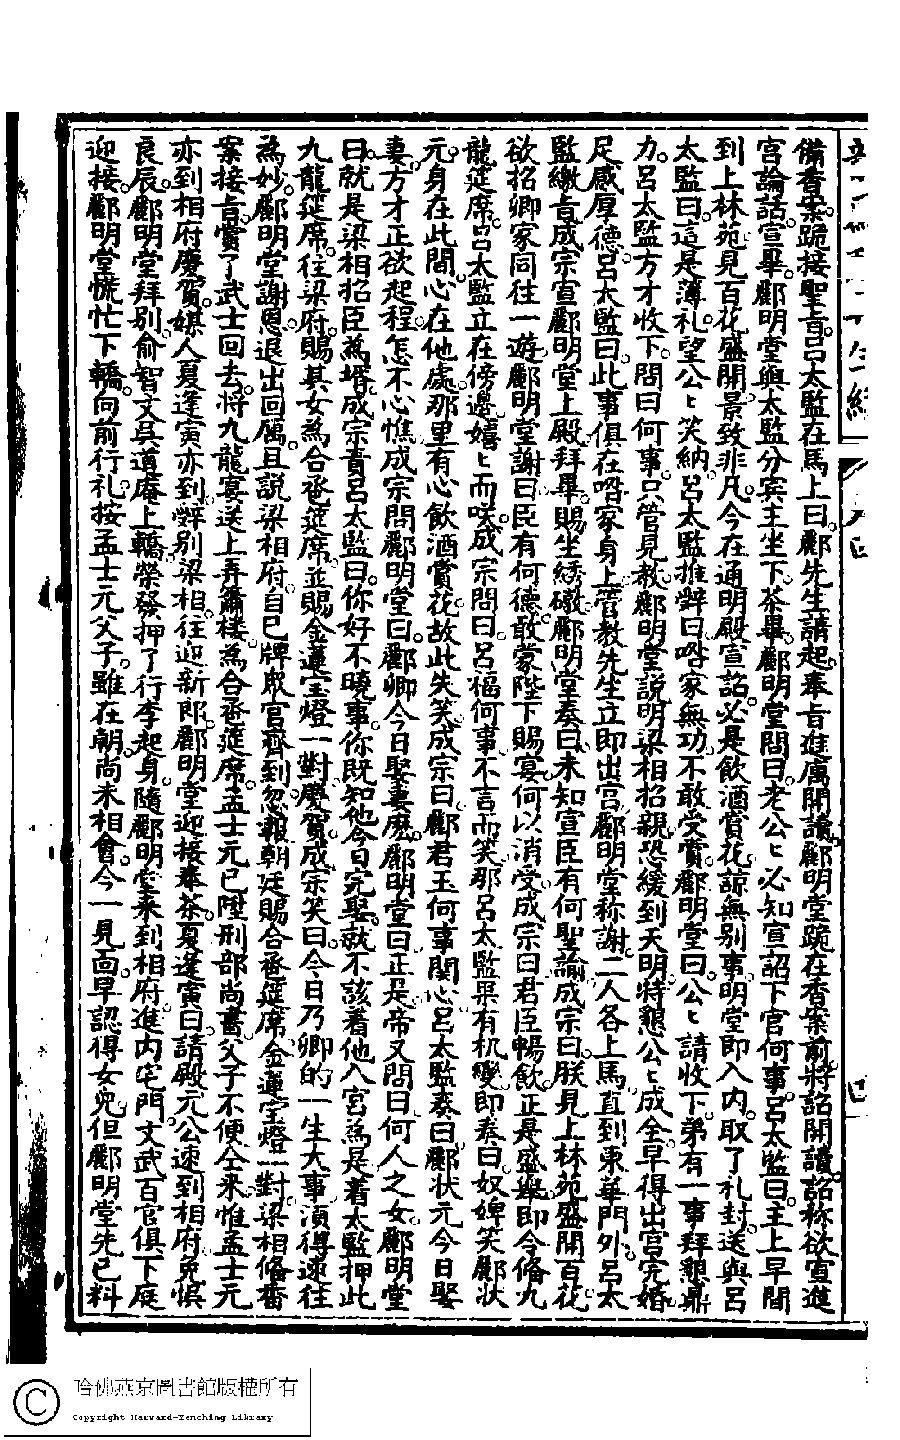 備香案跪接聖旨呂太監在馬上曰酈先生請起奉旨進厲開讀酈明堂跪在香案前將詔開讀詔称欲宣進
宮論話宣畢酈明堂與太監分宾主坐下茶畢酈明堂問曰老公々必知宣詔下官何事呂太監曰主上早間
到上林苑見百花盛開景致非凡今在通明殿宣詔必是飲酒賞花諒無别事明堂即入内取了礼封送與呂
太監曰這是薄礼望公々笑納呂太監推辤曰喒家無功不敢受賞酈明堂曰公々請收下弟有一事拜懇鼎
力呂太監方才收下問曰何事只管見教酈明堂說明梁相招親恐緩到天明特懇公々成全早得出宫完婚
足感厚德呂太監曰此事俱在喒家身上管教先生立即出宫酈明堂称謝二人各上馬直到東華門外呂太
監繳旨成宗宣酈明堂上殿拜畢賜坐綉礅酈明堂奏曰未知宣臣有何聖諭成宗曰朕見上林苑盛開百花
欲招卿家同往一遊酈明堂謝曰臣有何德敢蒙陛下賜宴何以消受成宗曰君臣暢飲正是盛舉即令俻九
龍筵席呂太監立在傍邊嬉々而咲成宗問曰呂福何事不言而笑那呂太監果有机變即奏曰奴婢笑酈状
元身在此間心在他處那里有心飲酒賞花故此失笑成宗曰酈君玉何事関心呂太監奏曰酈状元今日娶
妻方才正欲起程怎不心憔成宗問酈明堂曰酈卿今日娶妻庅酈明堂曰正是帝又問曰何人之女酈明堂
曰就是梁相招臣為壻成宗責呂太監曰你好不曉事你既知他今日完娶就不該着他入宮為是着太監押此
九龍筵席往梁府賜其女為合巹筵席並賜金蓮宝燈一對慶賀成宗笑曰今日乃卿的一生大事湏得速往
為妙酈明堂謝恩退出回厲且說梁相府自己牌眾官齊到忽報朝廷賜合巹筵席金蓮宝燈一對梁相俻香
案接旨賞了武士回去将九龍宴送上弄簫楼為合巹筵席孟士元已陞刑部尚書父子不便仝来惟孟士元
亦到相府慶賀媒人夏逢寅亦到辤别梁相往迎新郎酈明堂迎接奉茶夏逢寅曰請殿元公速到相府免悞
良辰酈明堂拜别俞智文吳道庵上轎榮發押了行李起身隨酈明堂来到相府進内宅門文武百官俱下庭
迎接酈明堂慌忙下轎向前行礼按孟士元父子雖在朝尚未相會今一見面早認得女児但酈明堂先已料
哈佛燕京圖書館版權所有
Copyright Harvard-Yenching Library